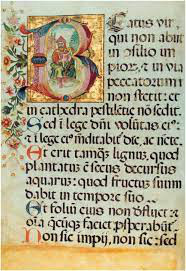 Beatus vir
qui non abit
in consilio in
pior et in via
peccatorum
non stetit: et
in cathedra pestilētie nō sedit.
Sed i lege dnī voluntas ei
et i lege ei meditabit die, ac nocte.
Et erit tamq̄ lignus, quod
plantatus ē secus decursus
aquarus: quod fructus suum
dabit in tempore suo
Et foliū eius non dfluet et
oīa q̄cūq faciet psperabunt
Non sic impij, non sic: sed